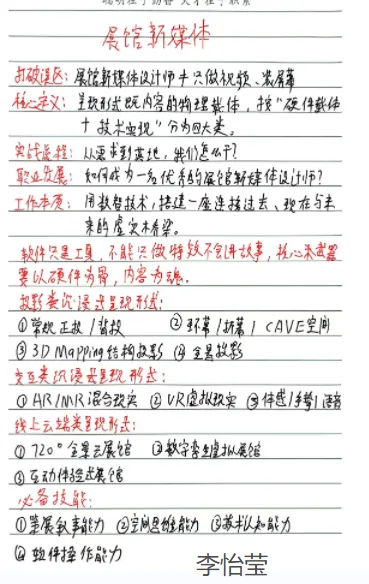 展馆新媒体
打破误区：展馆新媒体设计师≠只做视频、装屏幕
核心定义：呈现形式既内容的物理载体，按"硬件载体
+技术实现"分为四大类。
实战流程：从需求到落地，我们怎么干？
职业发展：如何成为一名优秀的展馆新媒体设计师？
工作本质：用数智技术，搭建一座连接过去、现在与未
来的虚实木桥梁。
软件只是工具，不能只做特效不会讲故事，核心杀武器
要以硬件为骨，内容为魂。
投影类沉浸式呈现形式：
①常规正投/背投 ②环幕/折幕/CAVE空间
③3D Mapping结构投影 ④全息投影
交互类沉浸式呈现形式：
①AR/MR混合现实 ②VR虚拟现实 ③体感/手势/语音
线上云端类呈现形式：
①720°全景云展馆 ②数字孪生虚拟展馆
③互动体验式展馆
必备技能：
①策展叙事能力 ②空间思维能力 ③艺术认知能力
④软件操作能力
李怡莹